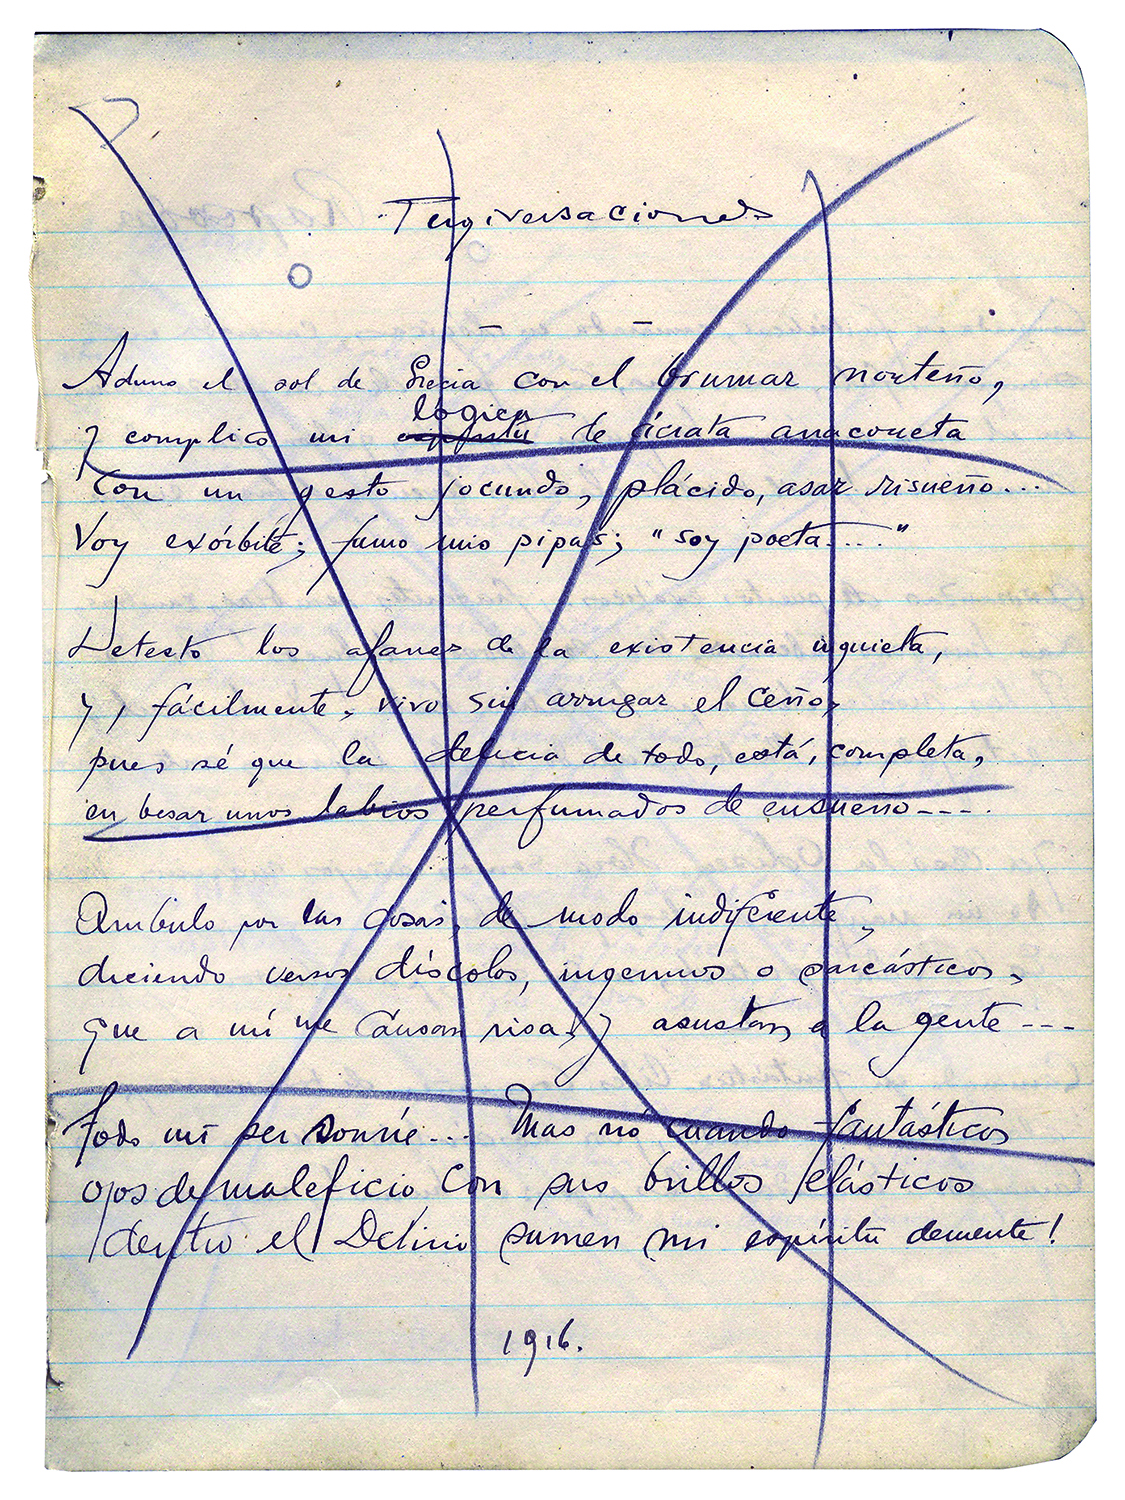 Tergiversaciones
Aduno el sol de Grecia con el brumar norteño,
y complico mi lógica espíritu de ácrata anacoreta
con un gesto jocundo, plácido, asaz risueño...
Voy exórbite; fumo mis pipas; "soy poeta....."
Detesto los afanes de la existencia inquieta,
y, fácilmente, vivo sin arrugar el ceño,
pues sé que la delicia de todo, está, completa,
en besar unos labios perfumados de ensueño----.
Ambulo por las cosas, de modo indiferente,
diciendo versos díscolos, ingenuos o sarcásticos,
que a mí me causan risa, y asustan a la gente ---
Todo mi ser sonríe... Mas nó cuando fantásticos
ojos de maleficio con sus brillos elásticos
dentro el Delirio sumen mi espíritu demente!
1916.